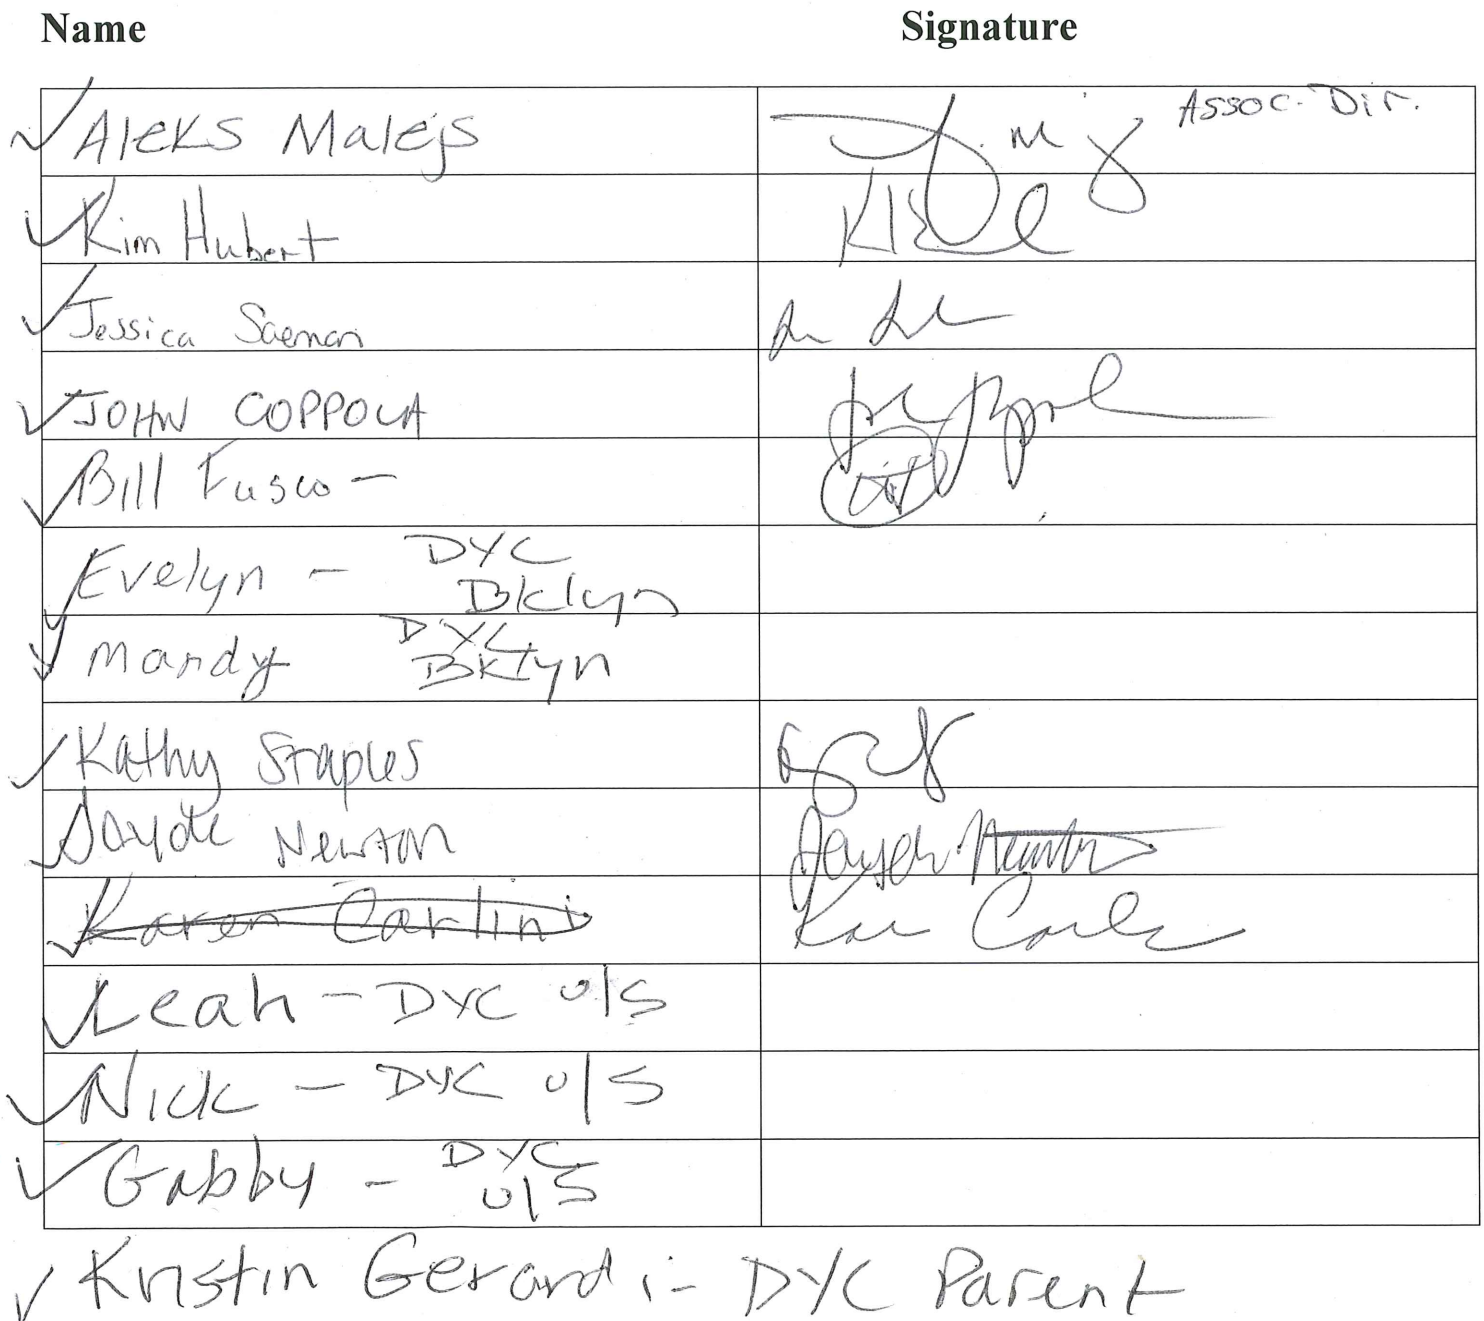 Name Signature
Aleks Malejs Assoc. Dir.
Kim Hubert
Jessica Saeman
JOHN COPPOLA
Bill Fusco -
Evelyn - DYC
Bklyn
Mandy DYC
Bklyn
Kathy Staples
Jayde Newton
Karen Carlini
Leah - DYC O/S
Nick - DYC O/S
Gabby - DYC
O/S
Kristin Gerardi - DYC Parent